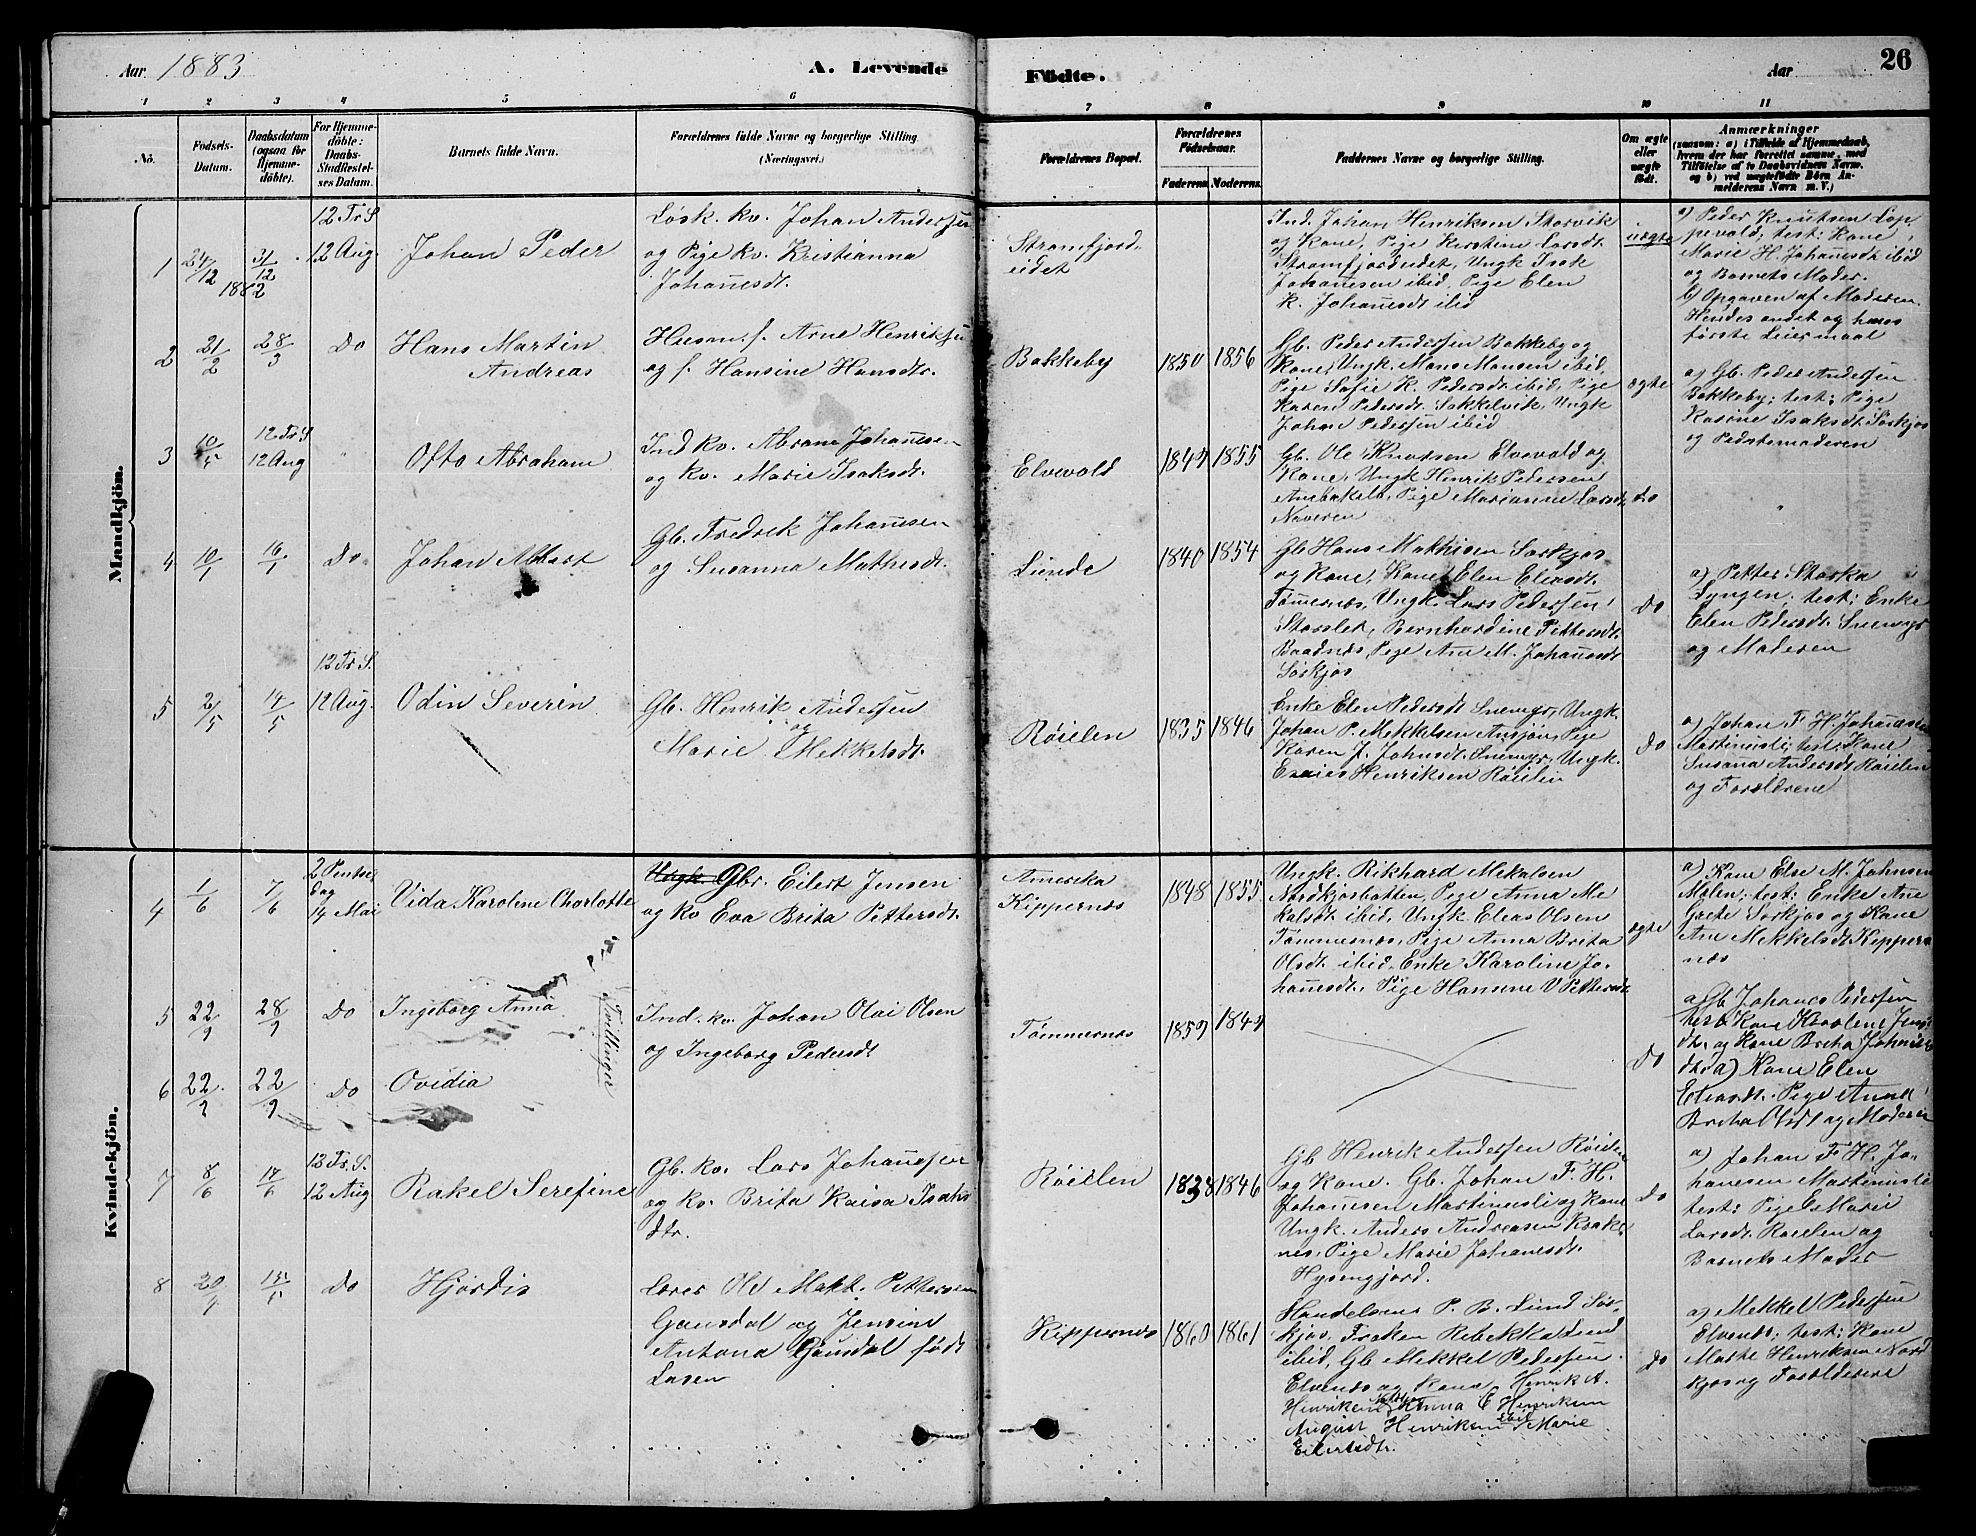 Aar 1883
A. Levende
Födte.
Aar
26
1 2 3 4 5 6 7 8 9 10 11
No.
Födsels-
Datum.
Daabsdatum
(ogsaa for
Hjemme-
döbte).
For Hjemme-
döbte:
Daabs-
Stadfæstel-
ses Datum.
Barnets fulde Navn.
Forældrenes fulde Navne og borgerlige Stilling.
(Næringsvei.)
Forældrenes Bopæl.
Forældrenes
Födselsaar.
Faderens. Moderens.
Faddernes Navne og borgerlige Stilling.
Om ægte
eller
uægte
födt.
Anmærkninger
(saasom: a) i Tilfælde af Hjemmedaab,
hvem der har forrettet samme, med
Tilföielse af to Daabsvidners Navne,
og b) ved uægtefödte Börn An-
melderens Navn m. V.)
Mandkjön.
1
24/12
31/12
1882
12 Tr S
12 Aug.
Johan Peder
Løsk. kv. Johan Andersen
og Pige kv. Kristianna
Johannesdt.
Strømfjord-
eidet
Ind. Johan Henriksen Storvik
og Kone, Pige Kerstine Larsdt.
Strømfjordeidet, Ungk Isak
Johannesen ibid, Pige Elen
K. Johannesdt ibid
uægte
a) Peder Knutsen Lop-
pevold; test: Kone
Marie H. Johannesdt ibid
og Barnets Moder.
b) Opgaven af Moderen
Hendes andet og hans
første Leiermaal
2
21/2
28/3
Do
Hans Martin
Andreas
Husm. f. Arne Henriksen
og f. Hansine Hansdt.
Bakkeby
1850 1856
Gb. Peder Andersen Bakkeby og
Kone, Ungk. Mons Monsen ibid,
Pige Sofie K. Pedersdt ibid, Pige
Karen Pedersdt. Sokkelvik, Ungk
Johan Pedersen ibid
ægte
a) Gb. Peder Andersen
Bakkeby; test: Pige
Kasrine Isaksdt. Sørkjos
og Pedstemoderen
3
10/5
12 Tr S
12 Aug
"
Otto Abraham
Ind kv. Abram Johannesen
og kv. Marie Isaksdt.
Elvevold
1849 1855
Gb. Ole Knutsen Elvevold og
Kone, Ungk Henrik Pedersen
Pige Marianne Larsdt
Naveren
do
"
4
10/1
16/1
Do
Johan Albert
Gb. Fredrik Johannesen
og Susanna Mathisdt.
Lunde
1840 1854
Gb Hans Mathisen Sørkjos
og Kone, Kone Elen Eliasdt.
Tømernæs, Ungk. Lars Pedersen
Storslet, Bernhardine Pettersdt.
Baadnæs, Pige Ane M. Johannesdt
Sørkjos
Do
a) Petter Storka
Lyngen; test: Enke
Elen Pedersdt. Snemyr
og Moderen
5
2/5
14/5
12 Tr S.
12 Aug.
Odin Severin
Gb. Henrik Andersen
og
Marie Mekkelsdt.
Røielen
1835 1846
Enke Elen Pedersdt Snemyr, Ungk.
Johan P. Mekkelsen Ansjøn, Pige
Karen J. Johnsdt. Snemyr, Ungk.
Esaias Henriksen Røielen
Do
a) Johan F. H. Johannesen
Martinusli; test: Kone
Susana Andersdt. Røielen
og Forældrene
Kvindekjön.
4
1/6
7/6
2 Pintse
dag
14 Mai
Vida Karoline Charlotte
Ungk. Gbr. Eilert Jensen
og kv Eva Brita Pettersdt.
Amerika
Kippernæs
1848 1855
Ungk. Rikhard Mekalsen
Nordkjosbotten, Pige Anna Me-
kalsdt ibid, Ungk Elias Olsen
Tømmernæs, Pige Anna Brita
Olsdt. ibid, Enke Karoline Jo-
hannesdt., Pige Hansine V Pettersdt
ægte
a) Kone Else M. Johnsen
Molen; test: Enke Ane
Grete Sørkjos og Kone
Ane Mekkelsdt Kipper-
næs
5
22/9
28/9
Do
Ingeborg Anna
Tvillinger
Ind. kv. Johan Olai Olsen
og Ingeborg Pedersdt
Tømmernæs
1859 1849
Do
a) Gb. Johannes Pedersen
test Kone Karoline Jens-
dt. og Kone Breta Johannes-
dt. a) Kone Elen
Eliasdt. Pige Anne
Breta Olsdt og Moderen
6
22/9
22/9
Do
Ovidia
7
8/6
17/6
13 Tr. S.
12 Aug
Rakel Serefine
Gb. kv. Lars Johannesen
og kv. Brita Kaisa Isaks
dtr.
Røielen
1838 1846
Gb Henrik Andersen Røielen
og Kone. Gb. Johan F. H.
Johannesen Martinusli og Kone
Ungk. Anders Andreasen Krake-
nes, Pige Marie Johannesdt.
Hysengjord.
Do
a) Johan F. H. Jo-
hanesen Martinusli
test: Pige E Marie
Larsdt. Røielen og
Barnets Moder
8
20/4
15/5
Do
Hjørdis
Lærer Ole Makt. Pettersen
Gausdal og Jensine
Antona Gausdal født
Lasen
Kippernæs
1860 1861
Handelsm P. B. Lund Sør-
kjos, Frøken Rebekka Lund
ibid, Gb Mekkel Pedersen
Elvenæs og Kone, Henrik A.
Henriksen, Anna E Henriksen
August Henriksen ibid Marie
Eilertsdt.
Do
a) Mekkel Pedersen
Elvenæs; test: Kone
Marte Henriksen Nord-
kjos og Forældrene